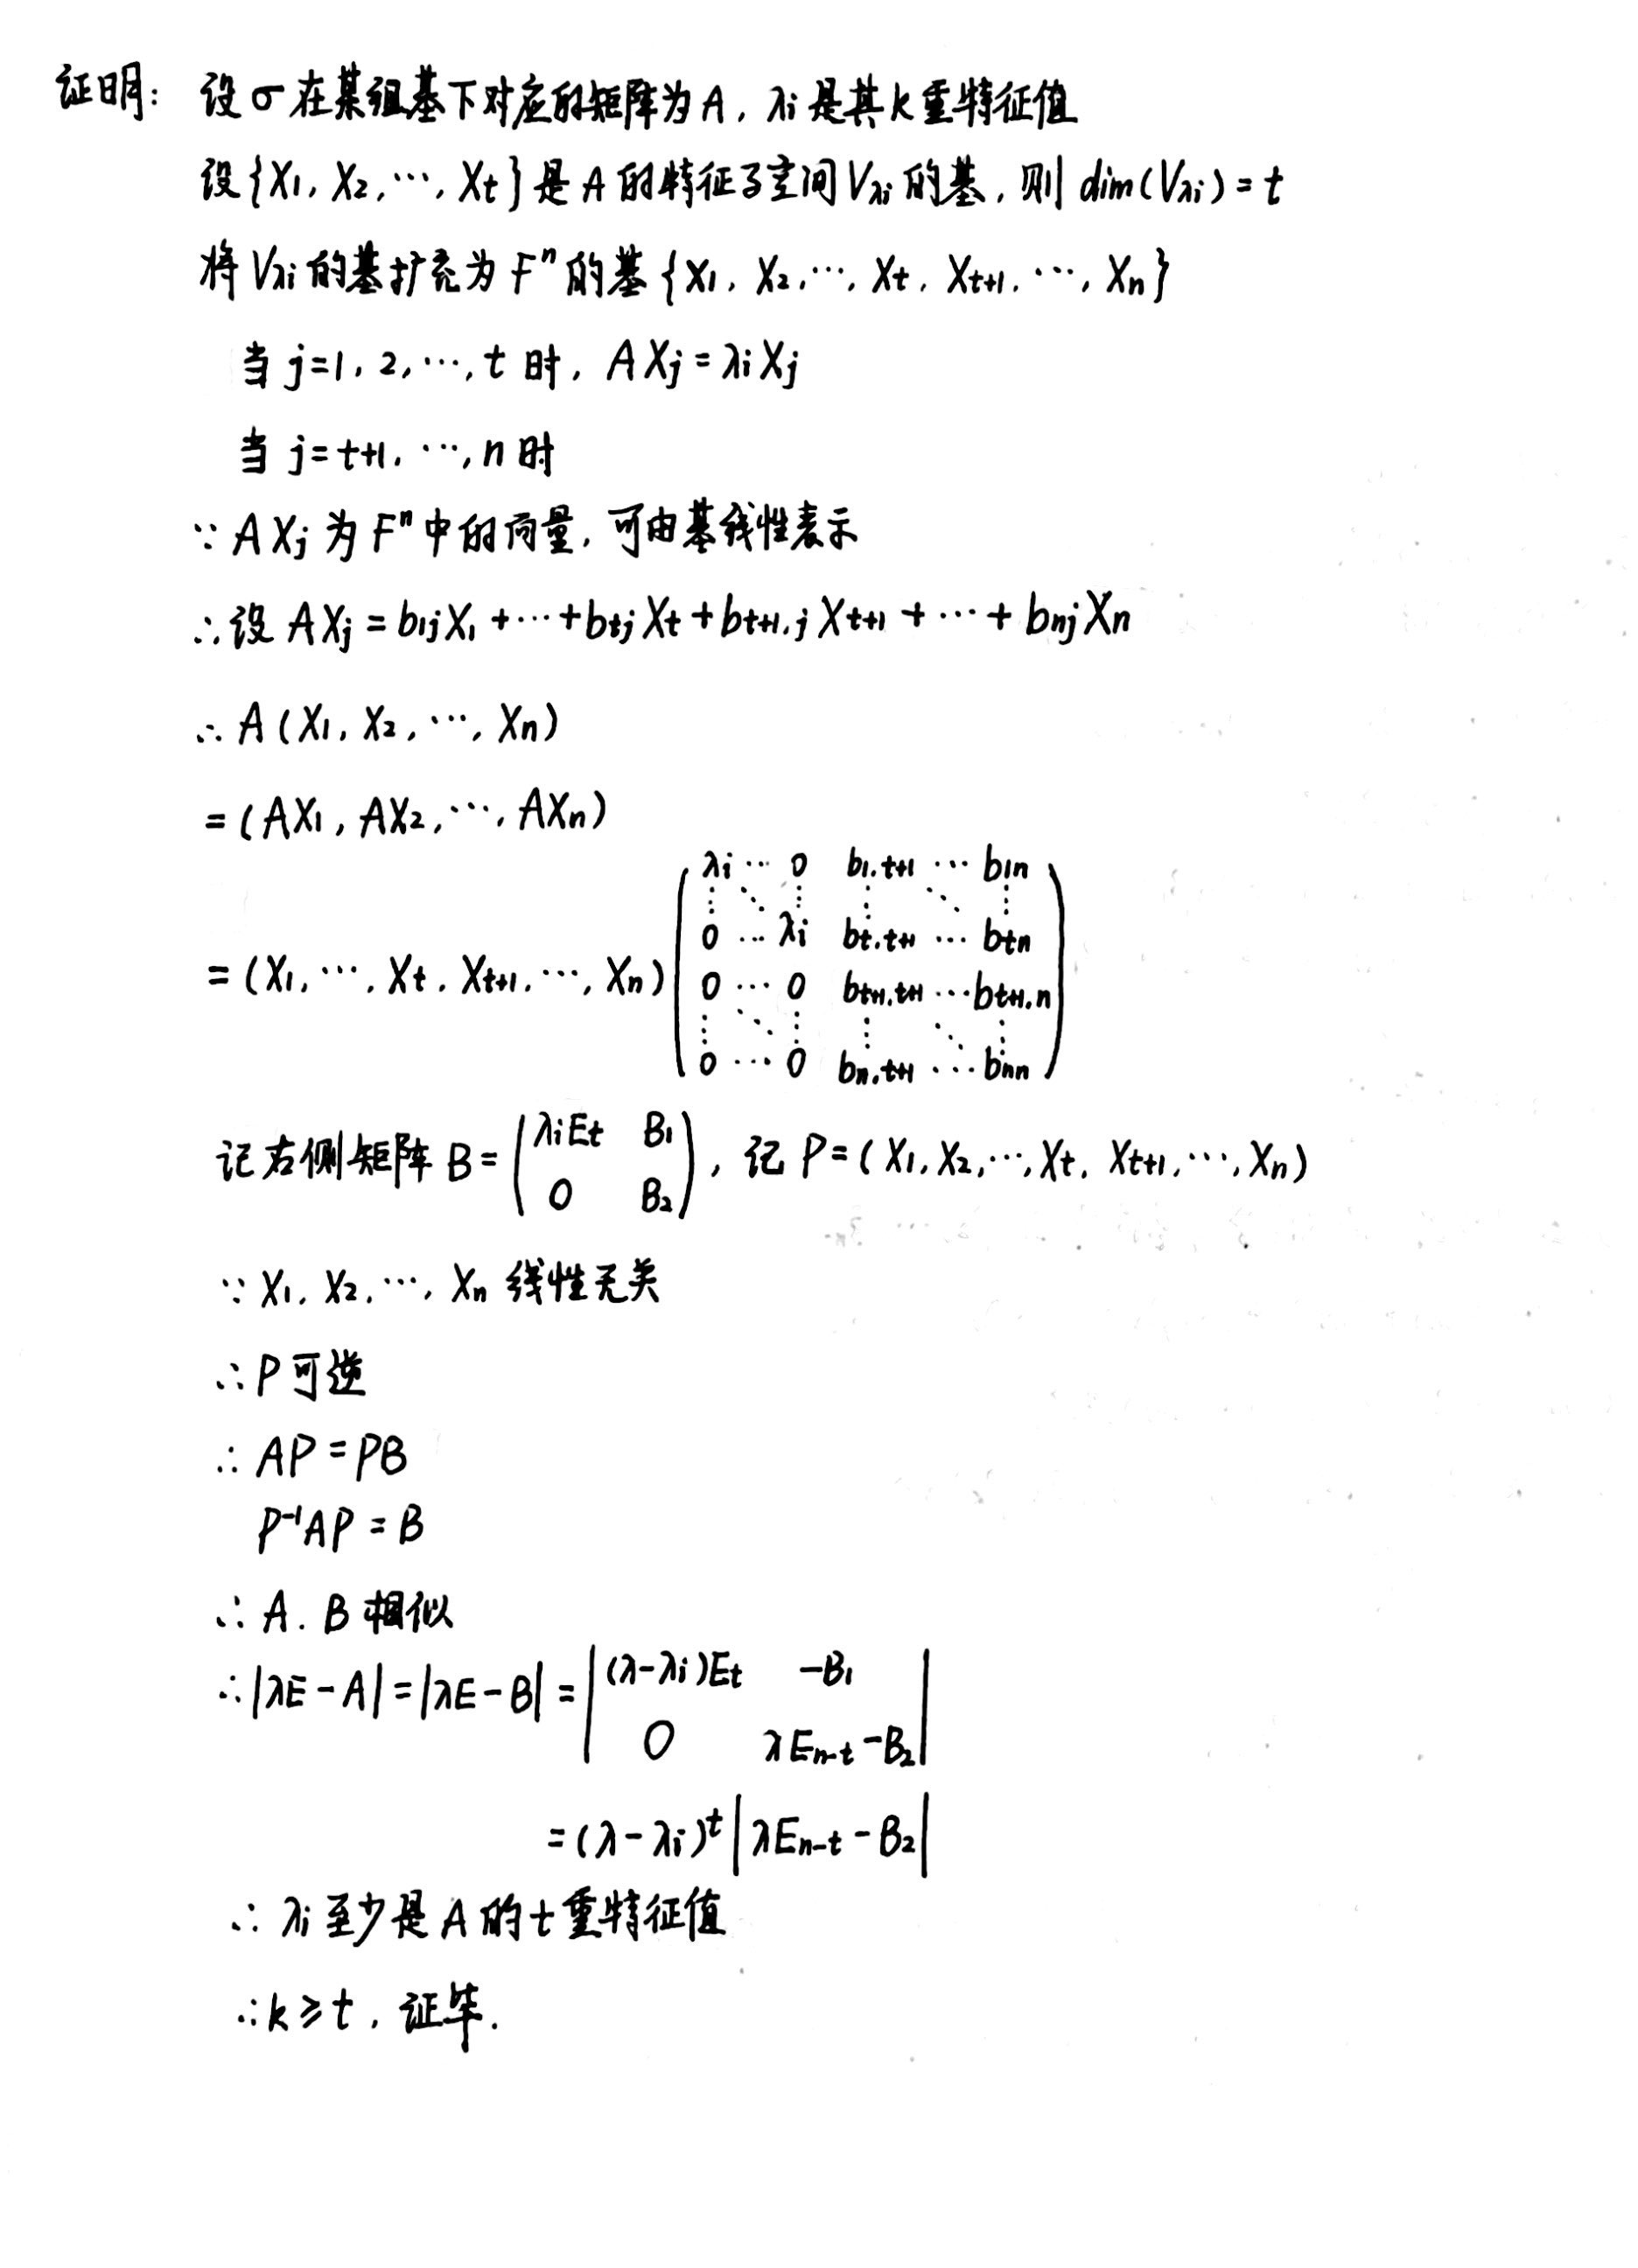 证明: 设σ在某组基下对应的矩阵为A, λi是其k重特征值
设{X1, X2, ⋯, Xt}是A的特征子空间Vλi的基, 则dim(Vλi)=t
将Vλi的基扩充为F^n的基{X1, X2, ⋯, Xt, Xt+1, ⋯, Xn}
当j=1, 2, ⋯, t时, AXj=λiXj
当j=t+1, ⋯, n时
∵AXj为F^n中的向量, 可由基线性表示
∴设AXj=b1jX1+⋯+btjXt+bt+1,jXt+1+⋯+bnjXn
∴A(X1, X2, ⋯, Xn)
=(AX1, AX2, ⋯, AXn)
=(X1, ⋯, Xt, Xt+1, ⋯, Xn)
λi ⋯ 0 b1,t+1 ⋯ b1n
⋮ ⋱ ⋮ ⋮ ⋱ ⋮
0 ⋯ λi bt,t+1 ⋯ btn
0 ⋯ 0 bt+1,t+1 ⋯ bt+1,n
⋮ ⋱ ⋮ ⋮ ⋱ ⋮
0 ⋯ 0 bn,t+1 ⋯ bnn
记右侧矩阵B=(λiEt B1
0 B2), 记P=(X1, X2, ⋯, Xt, Xt+1, ⋯, Xn)
∵X1, X2, ⋯, Xn线性无关
∴P可逆
∴AP=PB
P^-1AP=B
∴A. B相似
∴|λE-A|=|λE-B|=|(λ-λi)Et -B1
0 λEn-t-B2|
=(λ-λi)^t|λEn-t-B2|
∴λi至少是A的t重特征值
∴k≥t, 证毕.